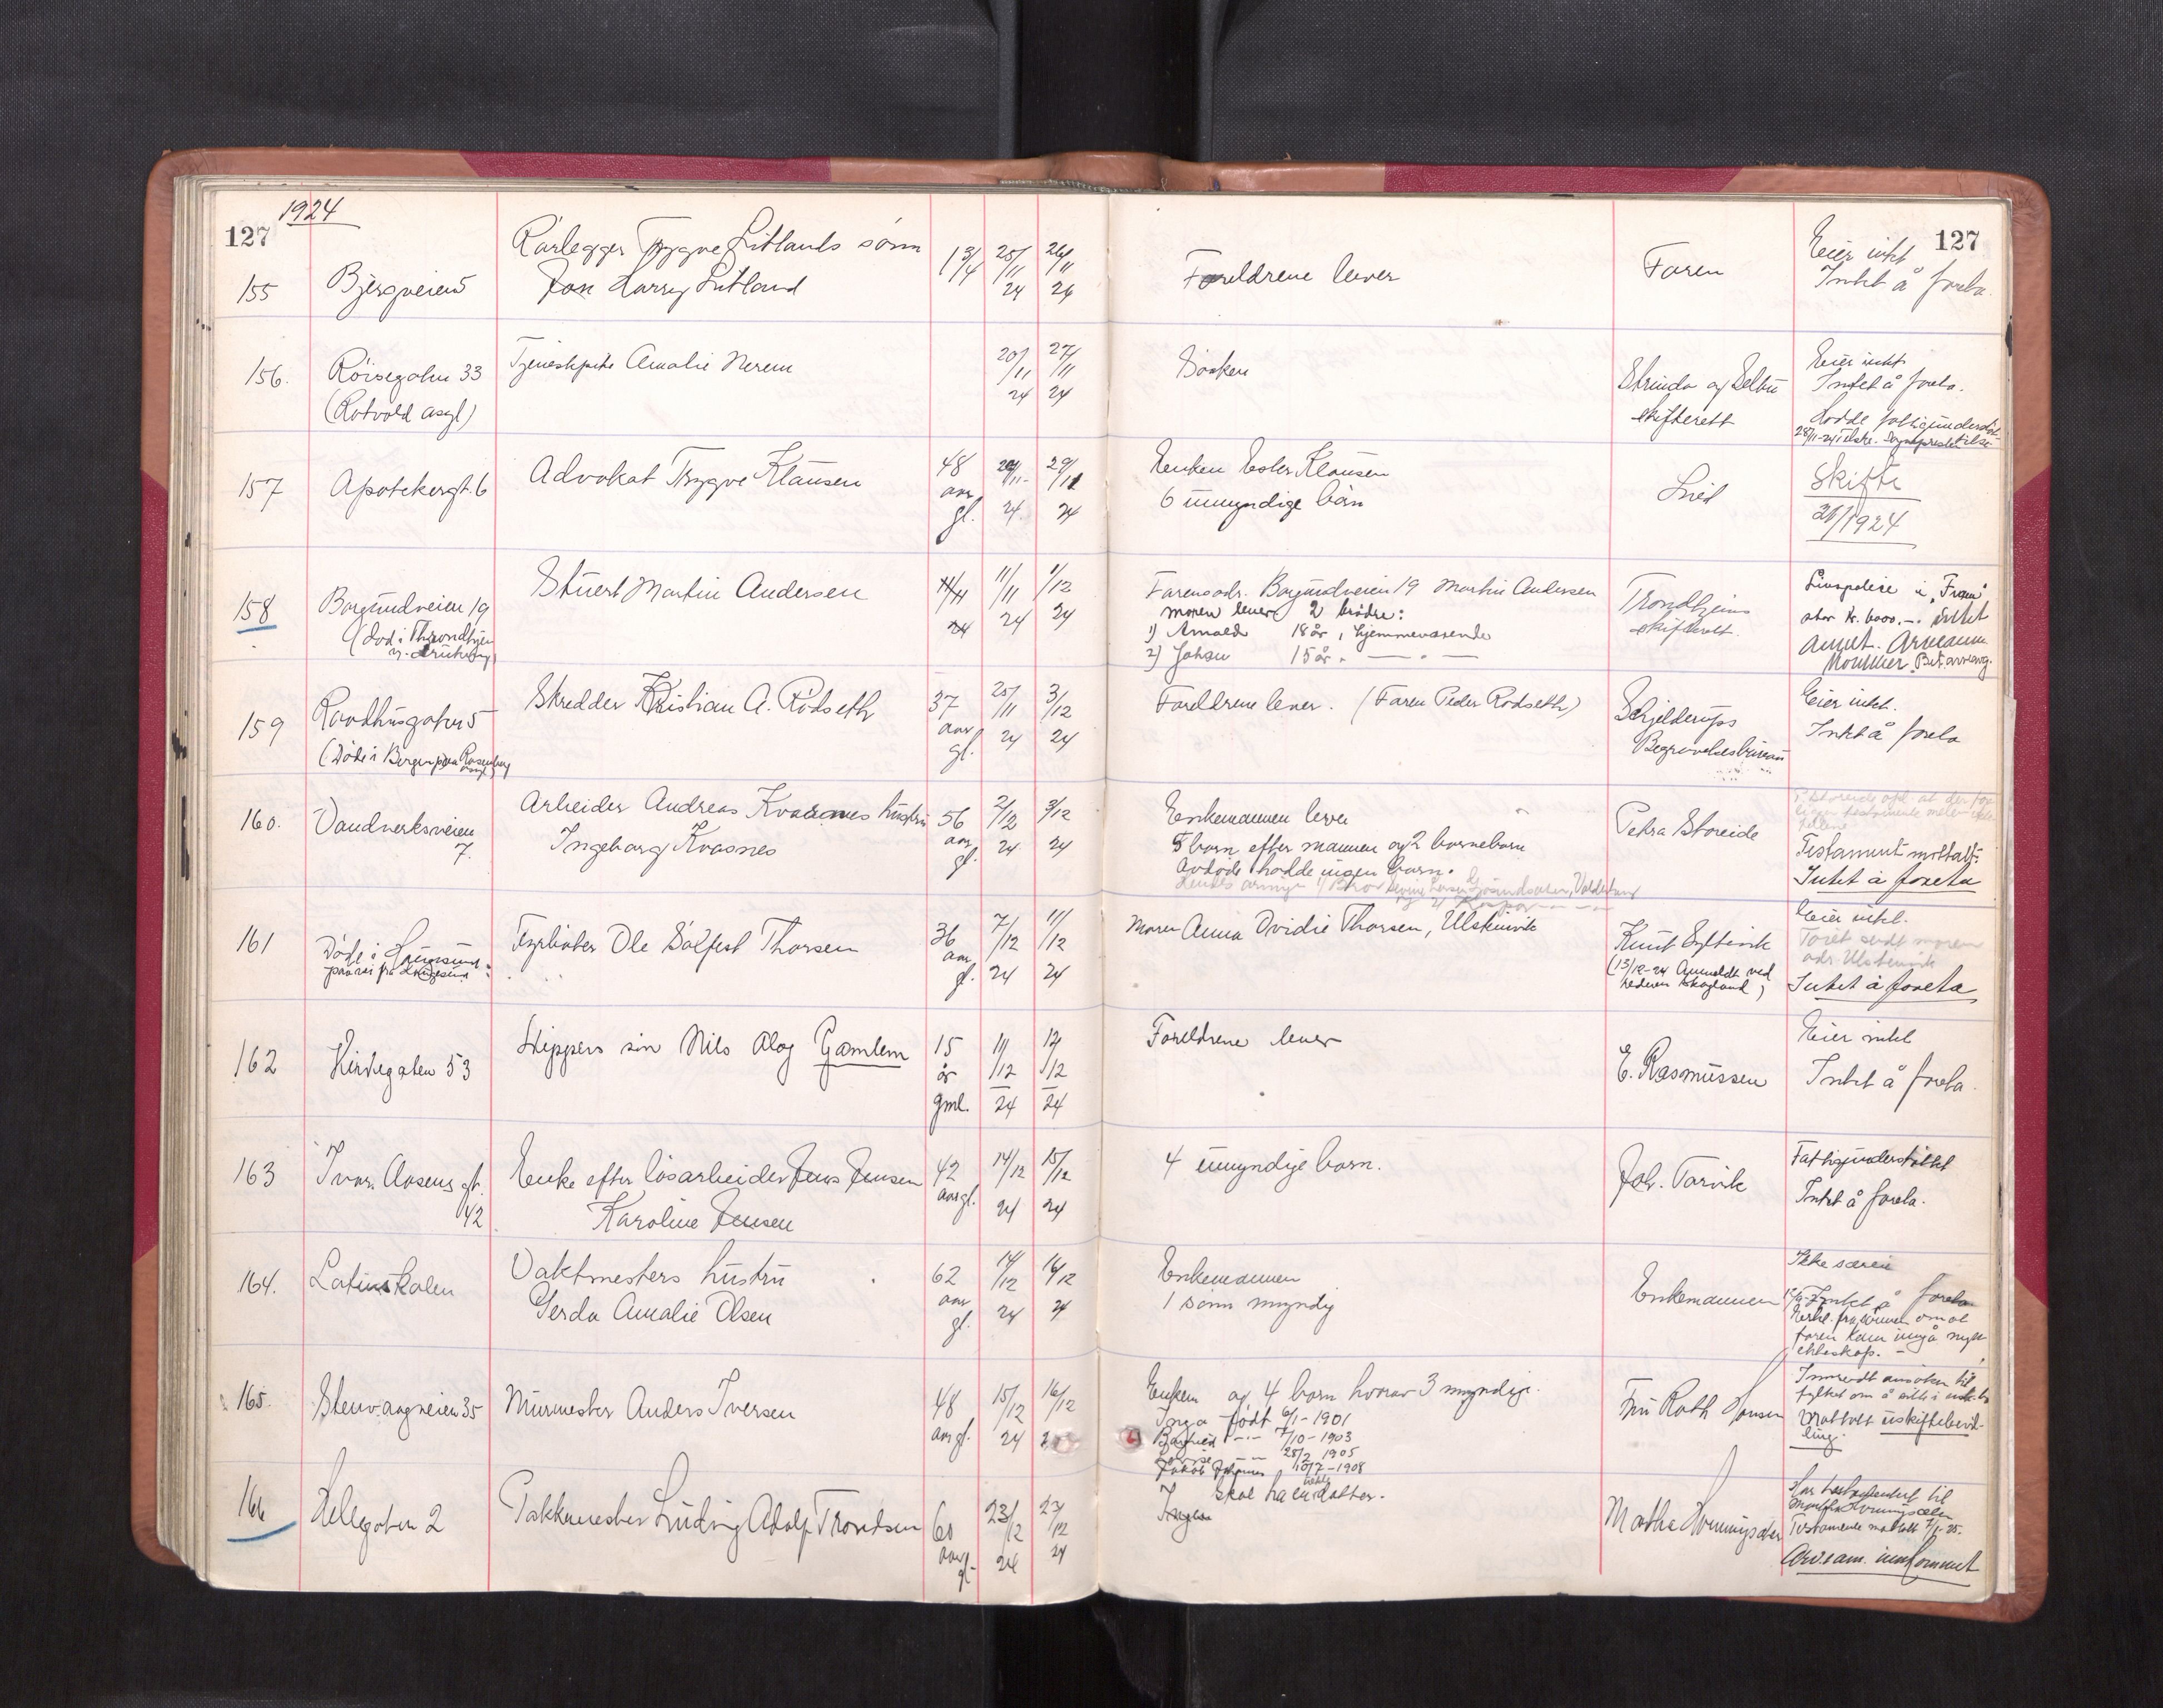 1924
127
127
155
Bjergveien 5
Rørlegger Trygve Litlands sønn
Jan Harry Litland
13/4
25/11 24
26/11 24
Foreldrene lever
Faren
Eier intet
Intet å foreta.
156.
Röisegaten 33
(Rotvold asyl)
Tjenestepike Amalie Nerem
20/11 24
27/11 24
Søsken
Strinda og Selbu
skifterett
Eier intet
Intet å foreta.
Hadde fattigunderstöt
157
Apotekergt. 6
Advokat Trygve Klausen
48
aar
gl.
24
29/11
24
Enken Ester Klausen
6 umyndige børn
Skifte
21/1924
158
Borgundveien 19
(död i Throndhjem
Stuert Martin Andersen
11/11 24
1/12 24
Farens adr. Borgundveien 19 Martin Andersen
moren lever 2 brödre:
1) Arnold 18 år, hjemmeværende
2) Johan 15 år. — . —
Trondhjems
skifterett
Livspolise i "Fram"
stor kr. 6000.-.
159
Raadhusgaten 5
(Döde i Bergen paa Rosenberg
Skredder Kristian A. Rödseth
37
aar
gl.
25/11 24
3/12 24
Foreldrene lever. (Faren Peder Rödseth)
Schjelderups
Begravelsesbureau
Eier intet.
Intet å foreta
160.
Vandverksveien
7.
Arbeider Andreas Kvasnes hustru
Ingeborg Kvasnes
56
aar
gl.
2/12 24
3/12 24
Enkemannen lever
5 barn efter mannen og 2 barnebarn
Avdöde hadde ingen barn.
Petra Storeide
Testament mottatt.
Intet å foreta
161
Döde i
Fyrböter Ole Solfest Thorsen
36
aar
gl.
7/12 24
11/12 24
Moren Anna Ovidie Thorsen, Ulsteinvik
Knut Eyltevik
(13/12-24 Anmeldt ved
Eier intet.
Intet å foreta
162
Kirkegaten 53
Skippers sön Nils Olog Gamlem
15
år
gml.
11/12 24
12/12 24
Foreldrene lever
E. Rasmussen
Eier intet
Intet å foreta.
163
Ivar Aasens gt.
42
Enke efter lösarbeider Jens Jensen
Karoline Jensen
42
aar gl.
14/12 24
15/12 24
4 umyndige barn.
Joh. Tarvik
Fattigunderstöttet
Intet å foreta.
164.
Latinskolen
Vaktmesters hustru
Gerda Amalie Olsen
62
aar
gl.
14/12 24
16/12 24
Enkemannen
1 sönn myndig
Enkemannen
Ikke særeie
Intet å foreta
faren kan inngå nytt
ekteskap. -
165.
Stenvaagveien 35
Murmester Anders Iversen
48
aar gl.
15/12 24
16/12
Enken og 4 barn hvorav 3 myndige.
Inga född 6/1-1901
7/10-1903
28/2 1905
Jakob Johannes 10/7-1908
Fru Roth Hansen
Mottatt uskiftebevil-
ling.
166
Hellegaten 2
Pakkmester Ludvig Adolf Trondsen
60
aar
gl.
23/12 24
23/12 24
Ingen
skal ha en datter.
Martha Horningsdal
Testamente mottatt 7/1-25.
Arveanm. innkommet